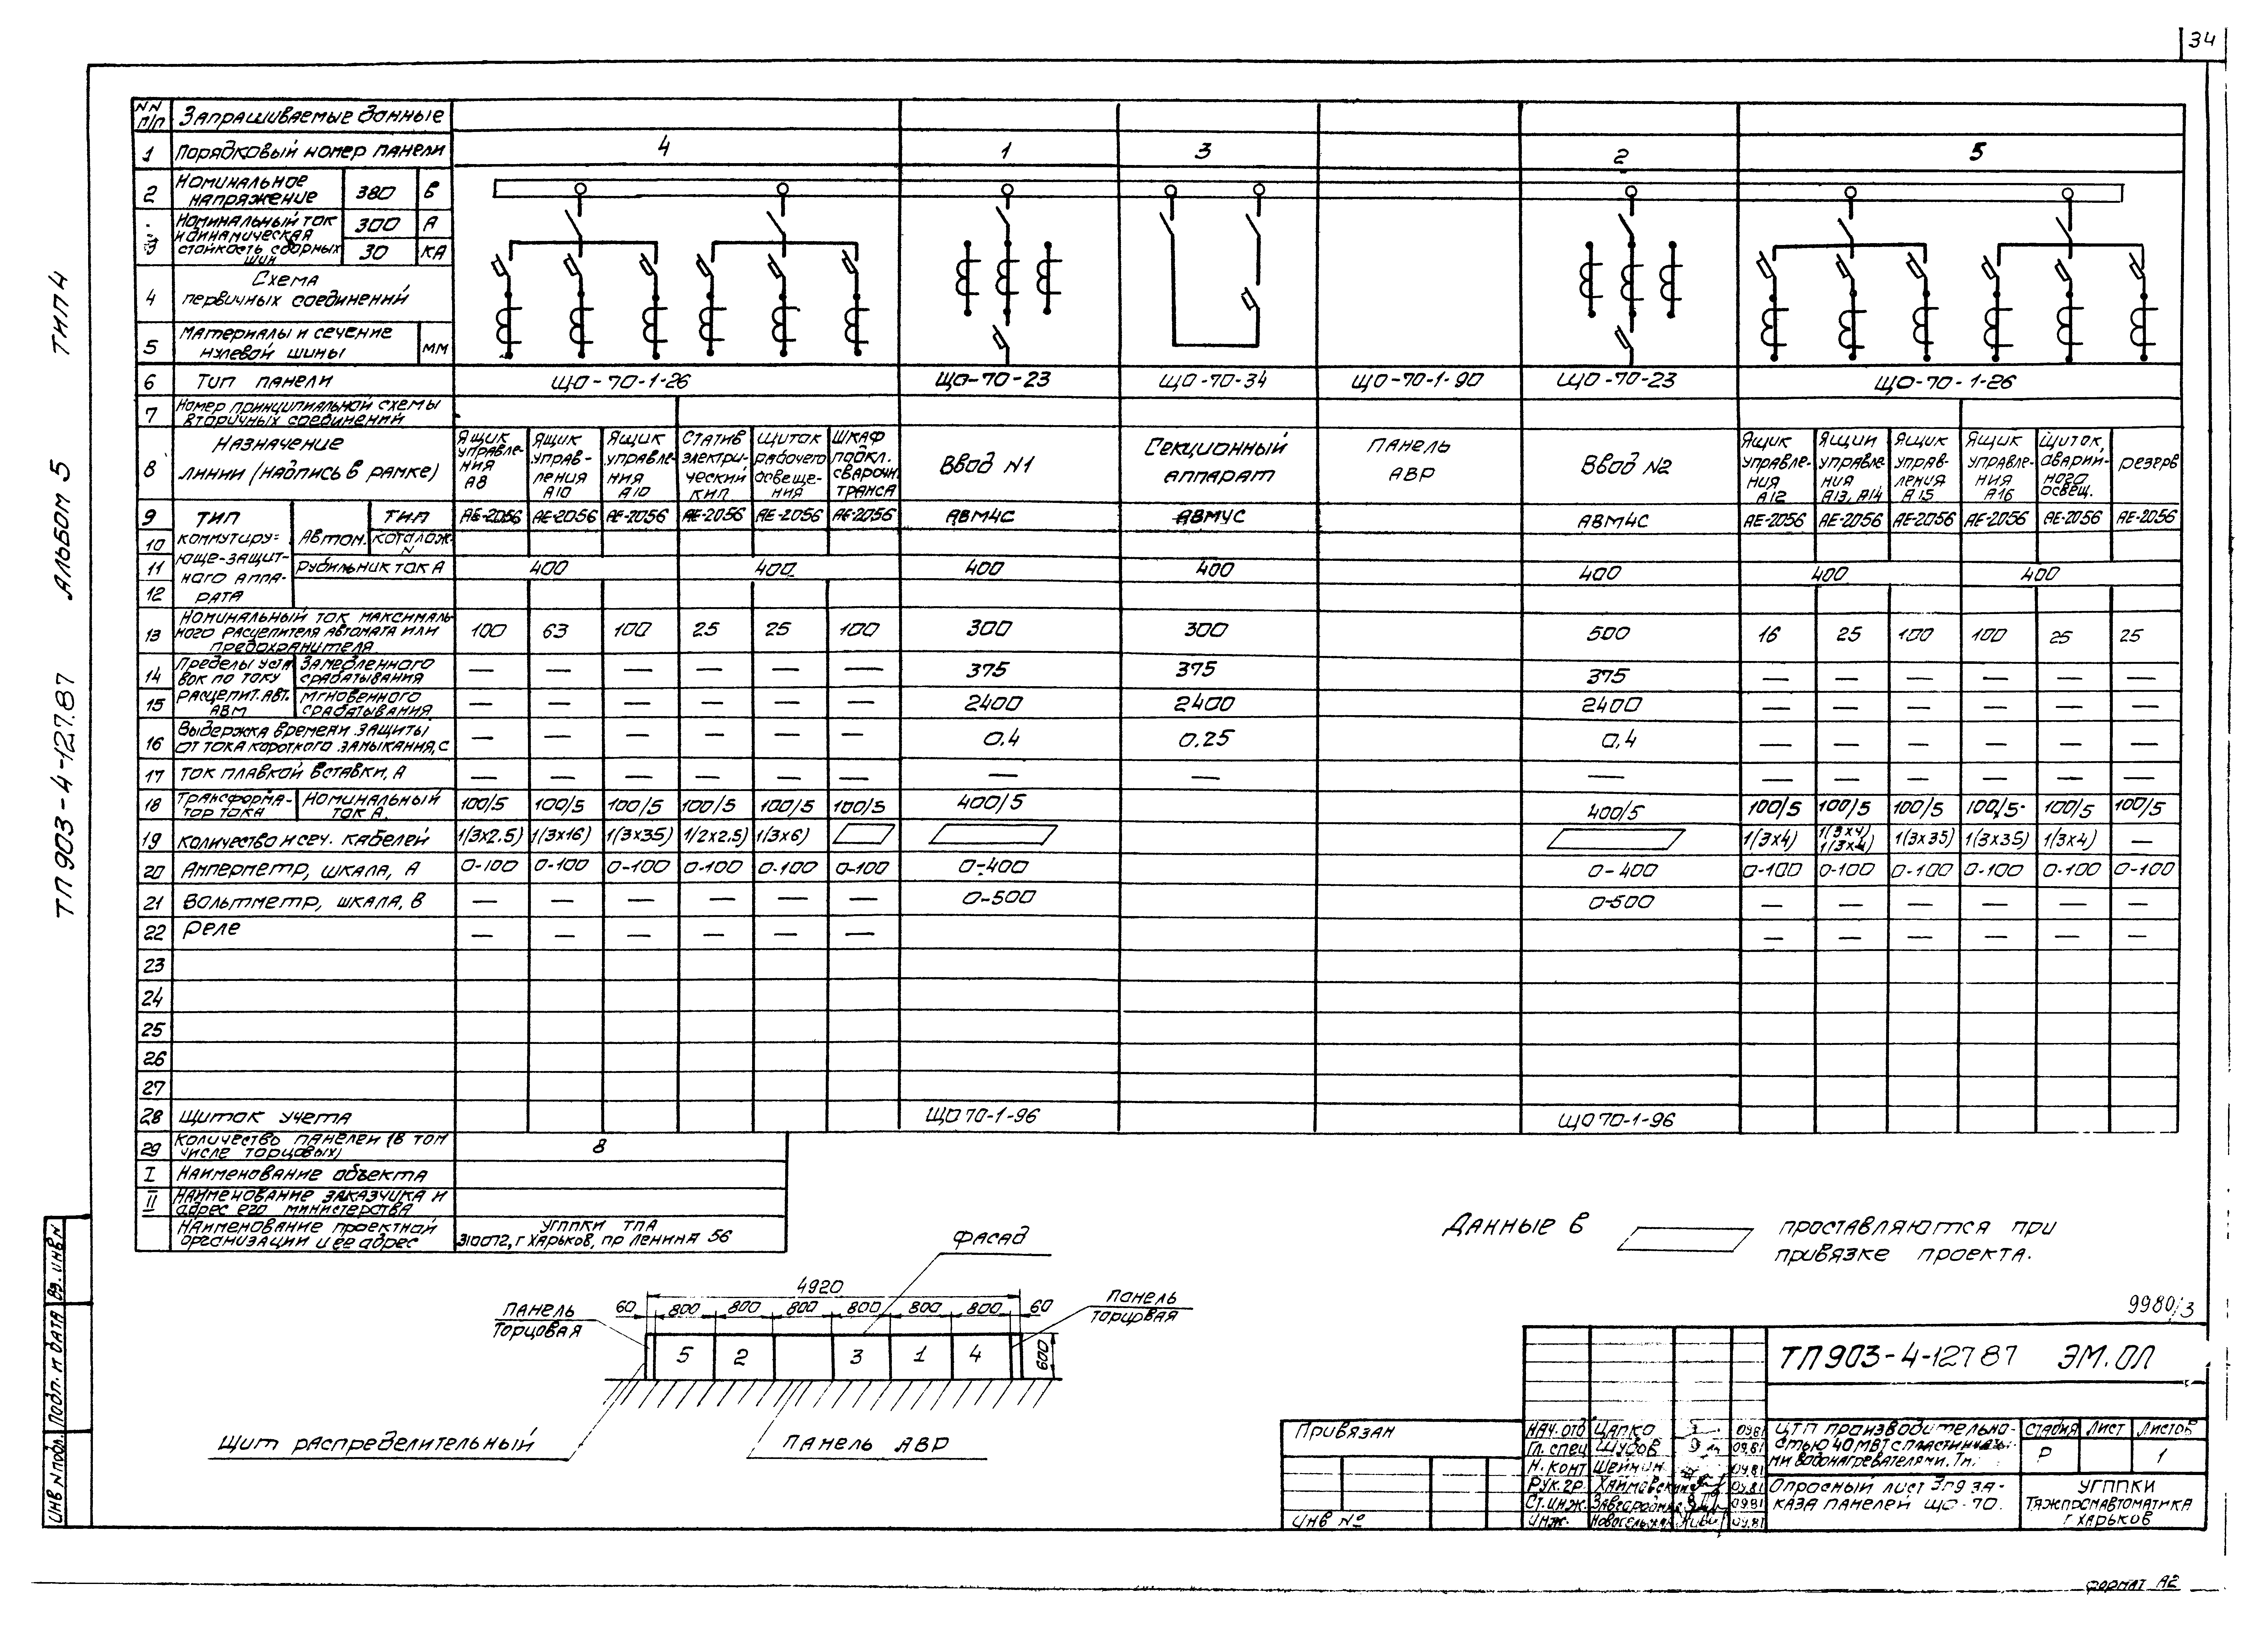 34
ТИП 4
Альбом 5
ТП 903-4-127.87
NN п/п Запрашиваемые данные
1 Порядковый номер панели 4 1 3 2 5
2 Номинальное напряжение 380 В
3 Номинальный ток и динамическая стойкость сборных шин 300 А 30 кА
4 Схема первичных соединений
5 Материалы и сечение нулевой шины мм
6 Тип панели ЩО-70-1-26 ЩО-70-23 ЩО-70-34 ЩО-70-1-90 ЩО-70-23 ЩО-70-1-26
7 Номер принципиальной схемы вторичных соединений
8 Назначение линии (надпись в рамке)
Ящик управления А8
Ящик управления А10
Ящик управления А10
Статив электрический КИП
Щиток рабочего освещения
Шкаф подкл. сварочн. транса
Ввод N1
Секционный аппарат
Панель АВР
Ввод N2
Ящик управления А12
Ящик управления А13, А14
Ящик управления А15
Ящик управления А16
Щиток аварийного освещ.
резерв
9 Тип коммутирующе-защитного аппарата Автом. тип АЕ-2056 АЕ-2056 АЕ-2056 АЕ-2056 АЕ-2056 АЕ-2056 АВМ4С АВМ4С АВМ4С АЕ-2056 АЕ-2056 АЕ-2056 АЕ-2056 АЕ-2056 АЕ-2056
10 каталож. N
11 Рубильник ток А 400 400 400 400 400 400 400
12
13 Номинальный ток максимального расцепителя автомата или предохранителя 100 63 100 25 25 100 300 300 500 16 25 100 100 25 25
14 Пределы уставок по току расцепит. авт. АВМ Замедленного срабатывания — — — — — — 375 375 375 — — — — — —
15 мгновенного срабатывания — — — — — — 2400 2400 2400 — — — — — —
16 Выдержка времени защиты от тока короткого замыкания, с — — — — — — 0,4 0,25 0,4 — — — — — —
17 Ток плавкой вставки, А — — — — — — — — — — — — — — —
18 Трансформатор тока Номинальный ток А. 100/5 100/5 100/5 100/5 100/5 100/5 400/5 400/5 100/5 100/5 100/5 100/5 100/5 100/5
19 Количество и сеч. кабелей 1(3x2.5) 1(3x16) 1(3x35) 1/2x2.5) 1/3x6) 1(3x4) 1(3x4) 1(3x4) 1(3x35) 1(3x35) 1(3x4) —
20 Амперметр, шкала, А 0-100 0-100 0-100 0-100 0-100 0-100 0-400 0-400 0-100 0-100 0-100 0-100 0-100 0-100
21 Вольтметр, шкала, В — — — — — — 0-500 0-500 — — — — — —
22 Реле — — — — — — — — — — — —
23
24
25
26
27
28 Щиток учета ЩО 70-1-96 ЩО 70-1-96
29 Количество панелей (в том числе торцовых) 8
I Наименование объекта
II Наименование заказчика и адрес его министерства
Наименование проектной организации и ее адрес УГППКИ ТПА 310072, г Харьков, пр Ленина 56
Данные в проставляются при
привязке проекта.
Фасад
4920
60 800 800 800 800 800 800 60
Панель торцовая
Панель торцовая
5 2 3 1 4
600
Щит распределительный
Панель АВР
9980/3
Привязан
Инв №
ТП 903-4-127 87 ЭМ.ОЛ
Нач. отд Цапко 09.81
Гл. спец Шубов 09.81
Н. конт Шейнин 09.81
Рук. гр. 09.81
Ст. инж. 09.81
Инж. 09.81
ЦТП производительно-
стью 40 МВт с пластинчаты-
ми водонагревателями.
Стадия Лист Листов
Р 1
Опросный лист для за-
каза панелей ЩО-70.
УГППКИ
Тяжпромавтоматика
г Харьков
Инв N подл. Подп. и дата Вз. инв N
Формат А2